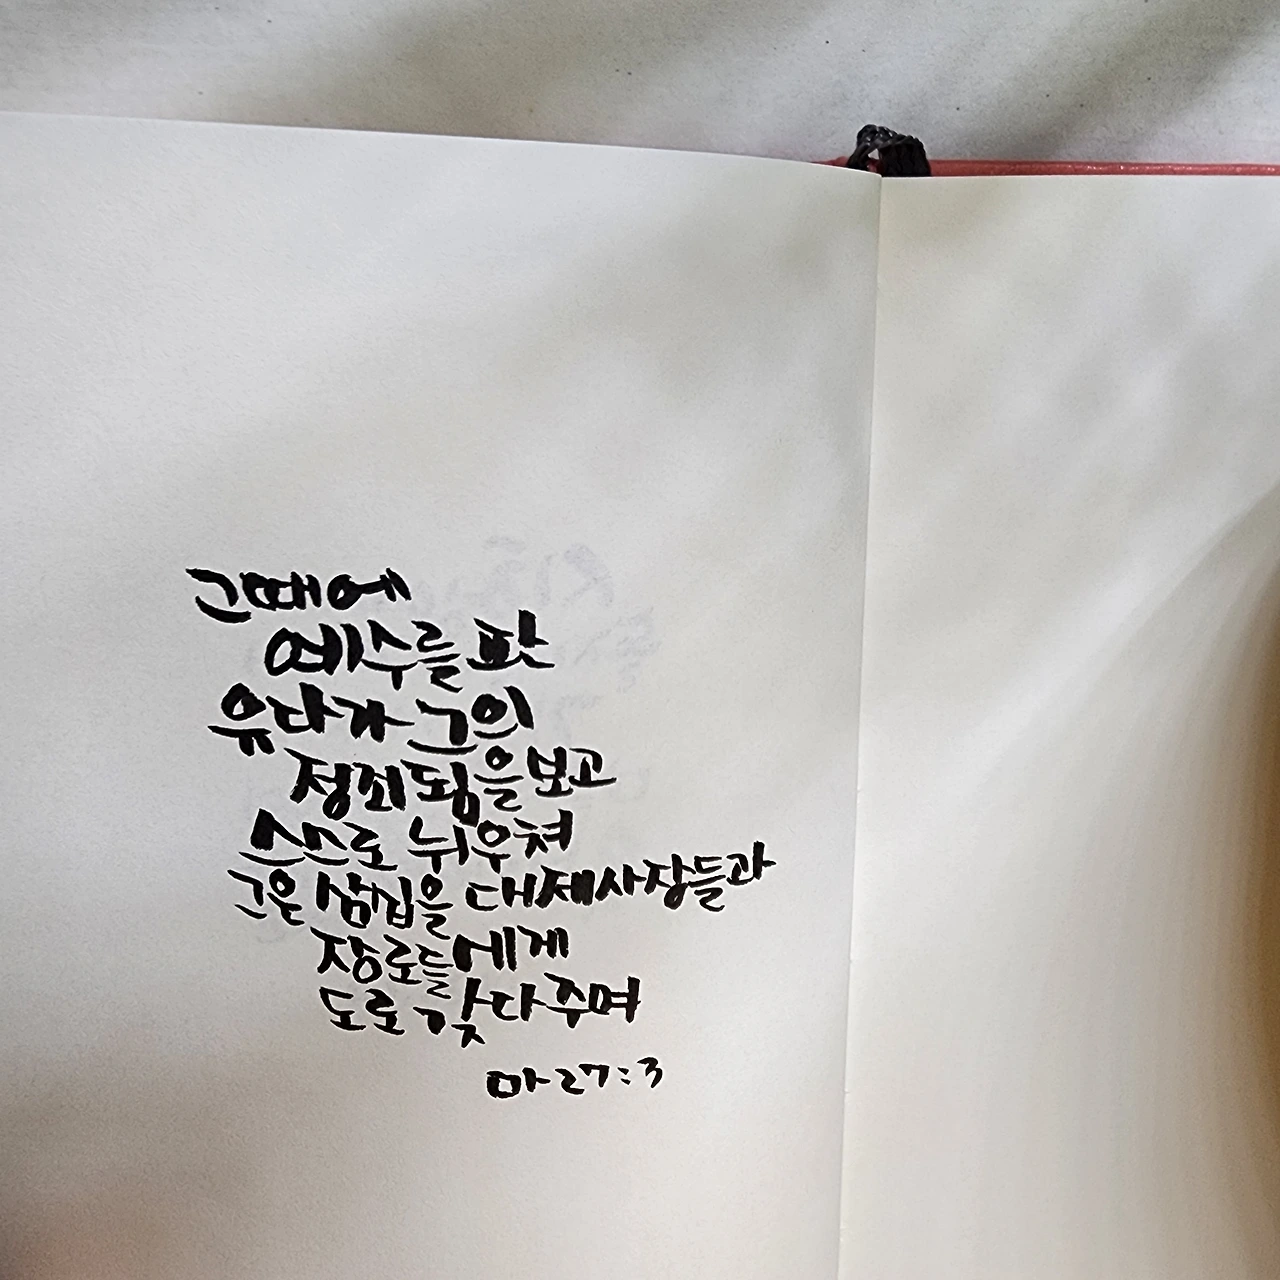 그때에
예수를 판
유다가 그의
정죄됨을 보고
스스로 뉘우쳐
그 은 삼십을 대제사장들과
장로들에게
도로 갖다 주며
마 27:3